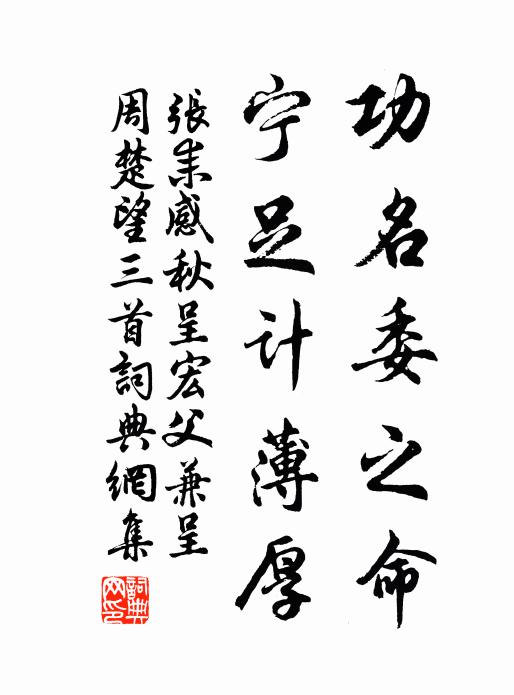 功名委之命
宁足计薄厚
張耒感秋呈宏父兼呈
周楚望三首詞典網集
詞典
网印